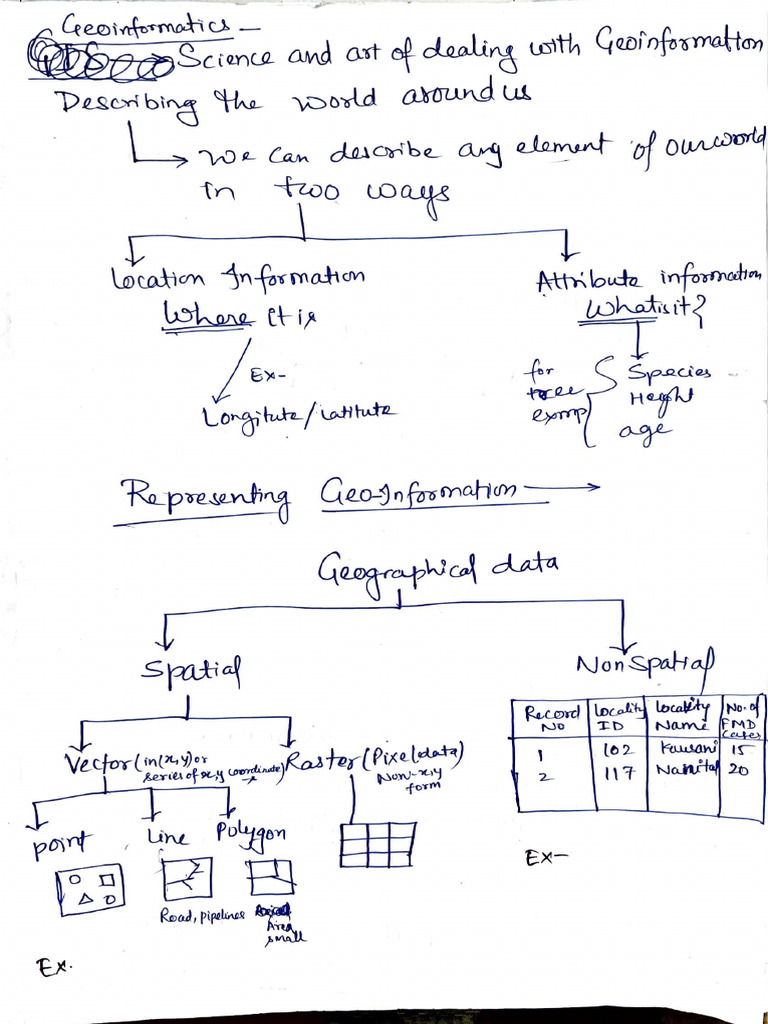 Geoinformatics -
Science and art of dealing with Geoinformation
Describing the world around us
we can describe any element of our world
in two ways
Location Information
Where it is
Ex-
Longitute/Latitute
Attribute information
What is it?
for
tree
exmp
Species
Height
age
Representing Geo-Information
Geographical data
Spatial
Non Spatial
Vector (in (x,y) or
series of x,y coordinate)
Raster (Pixel data)
Non-x,y
form
Record
No
Locality
ID
Locality
Name
No. of
FMD
cases
1 102 Kausani 15
2 117 Nainital 20
point
Line
Polygon
Road, pipelines
Area
small
Ex-
Ex.